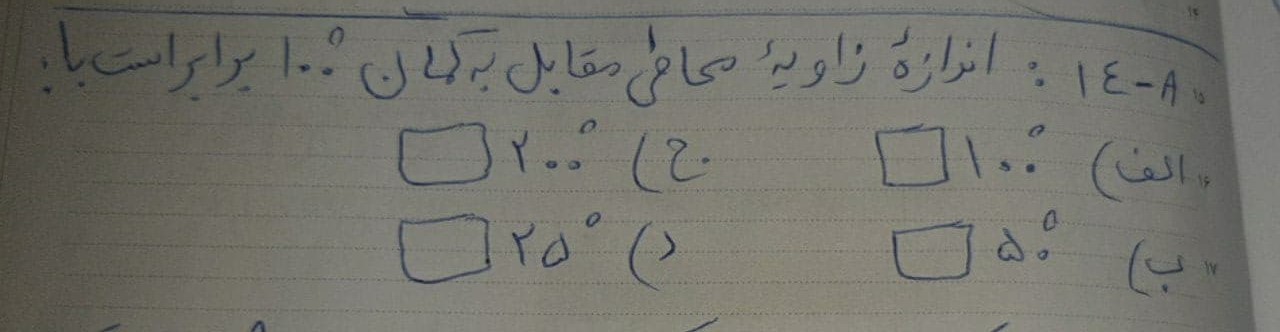 ۱۴-A : اندازهٔ زاویهٔ محاطی مقابل به کمان ۱۰۰° برابر است با:
الف) ۱۰۰° ج) ۲۰۰°
ب) ۵۰° د) ۲۵°